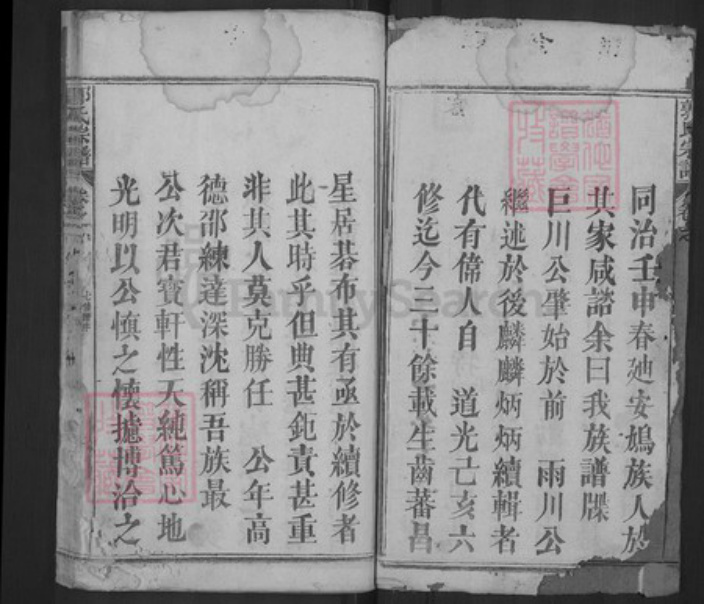 同治壬申春廸安鳩族人於
其家咸諮余曰我族譜牒
巨川公肇始於前 雨川公
繼述於後麟麟炳炳續輯者
代有偉人自 道光己亥六
修迄今三十餘載生齒蕃昌
星居碁布其有亟於續修者
此其時乎但典甚鉅責甚重
非其人莫克勝任 公年高
德邵練達深沈稱吾族最
公次君寶軒性天純篤心地
光明以公慎之懷攄博洽之
郭氏宗譜
FamilySearch